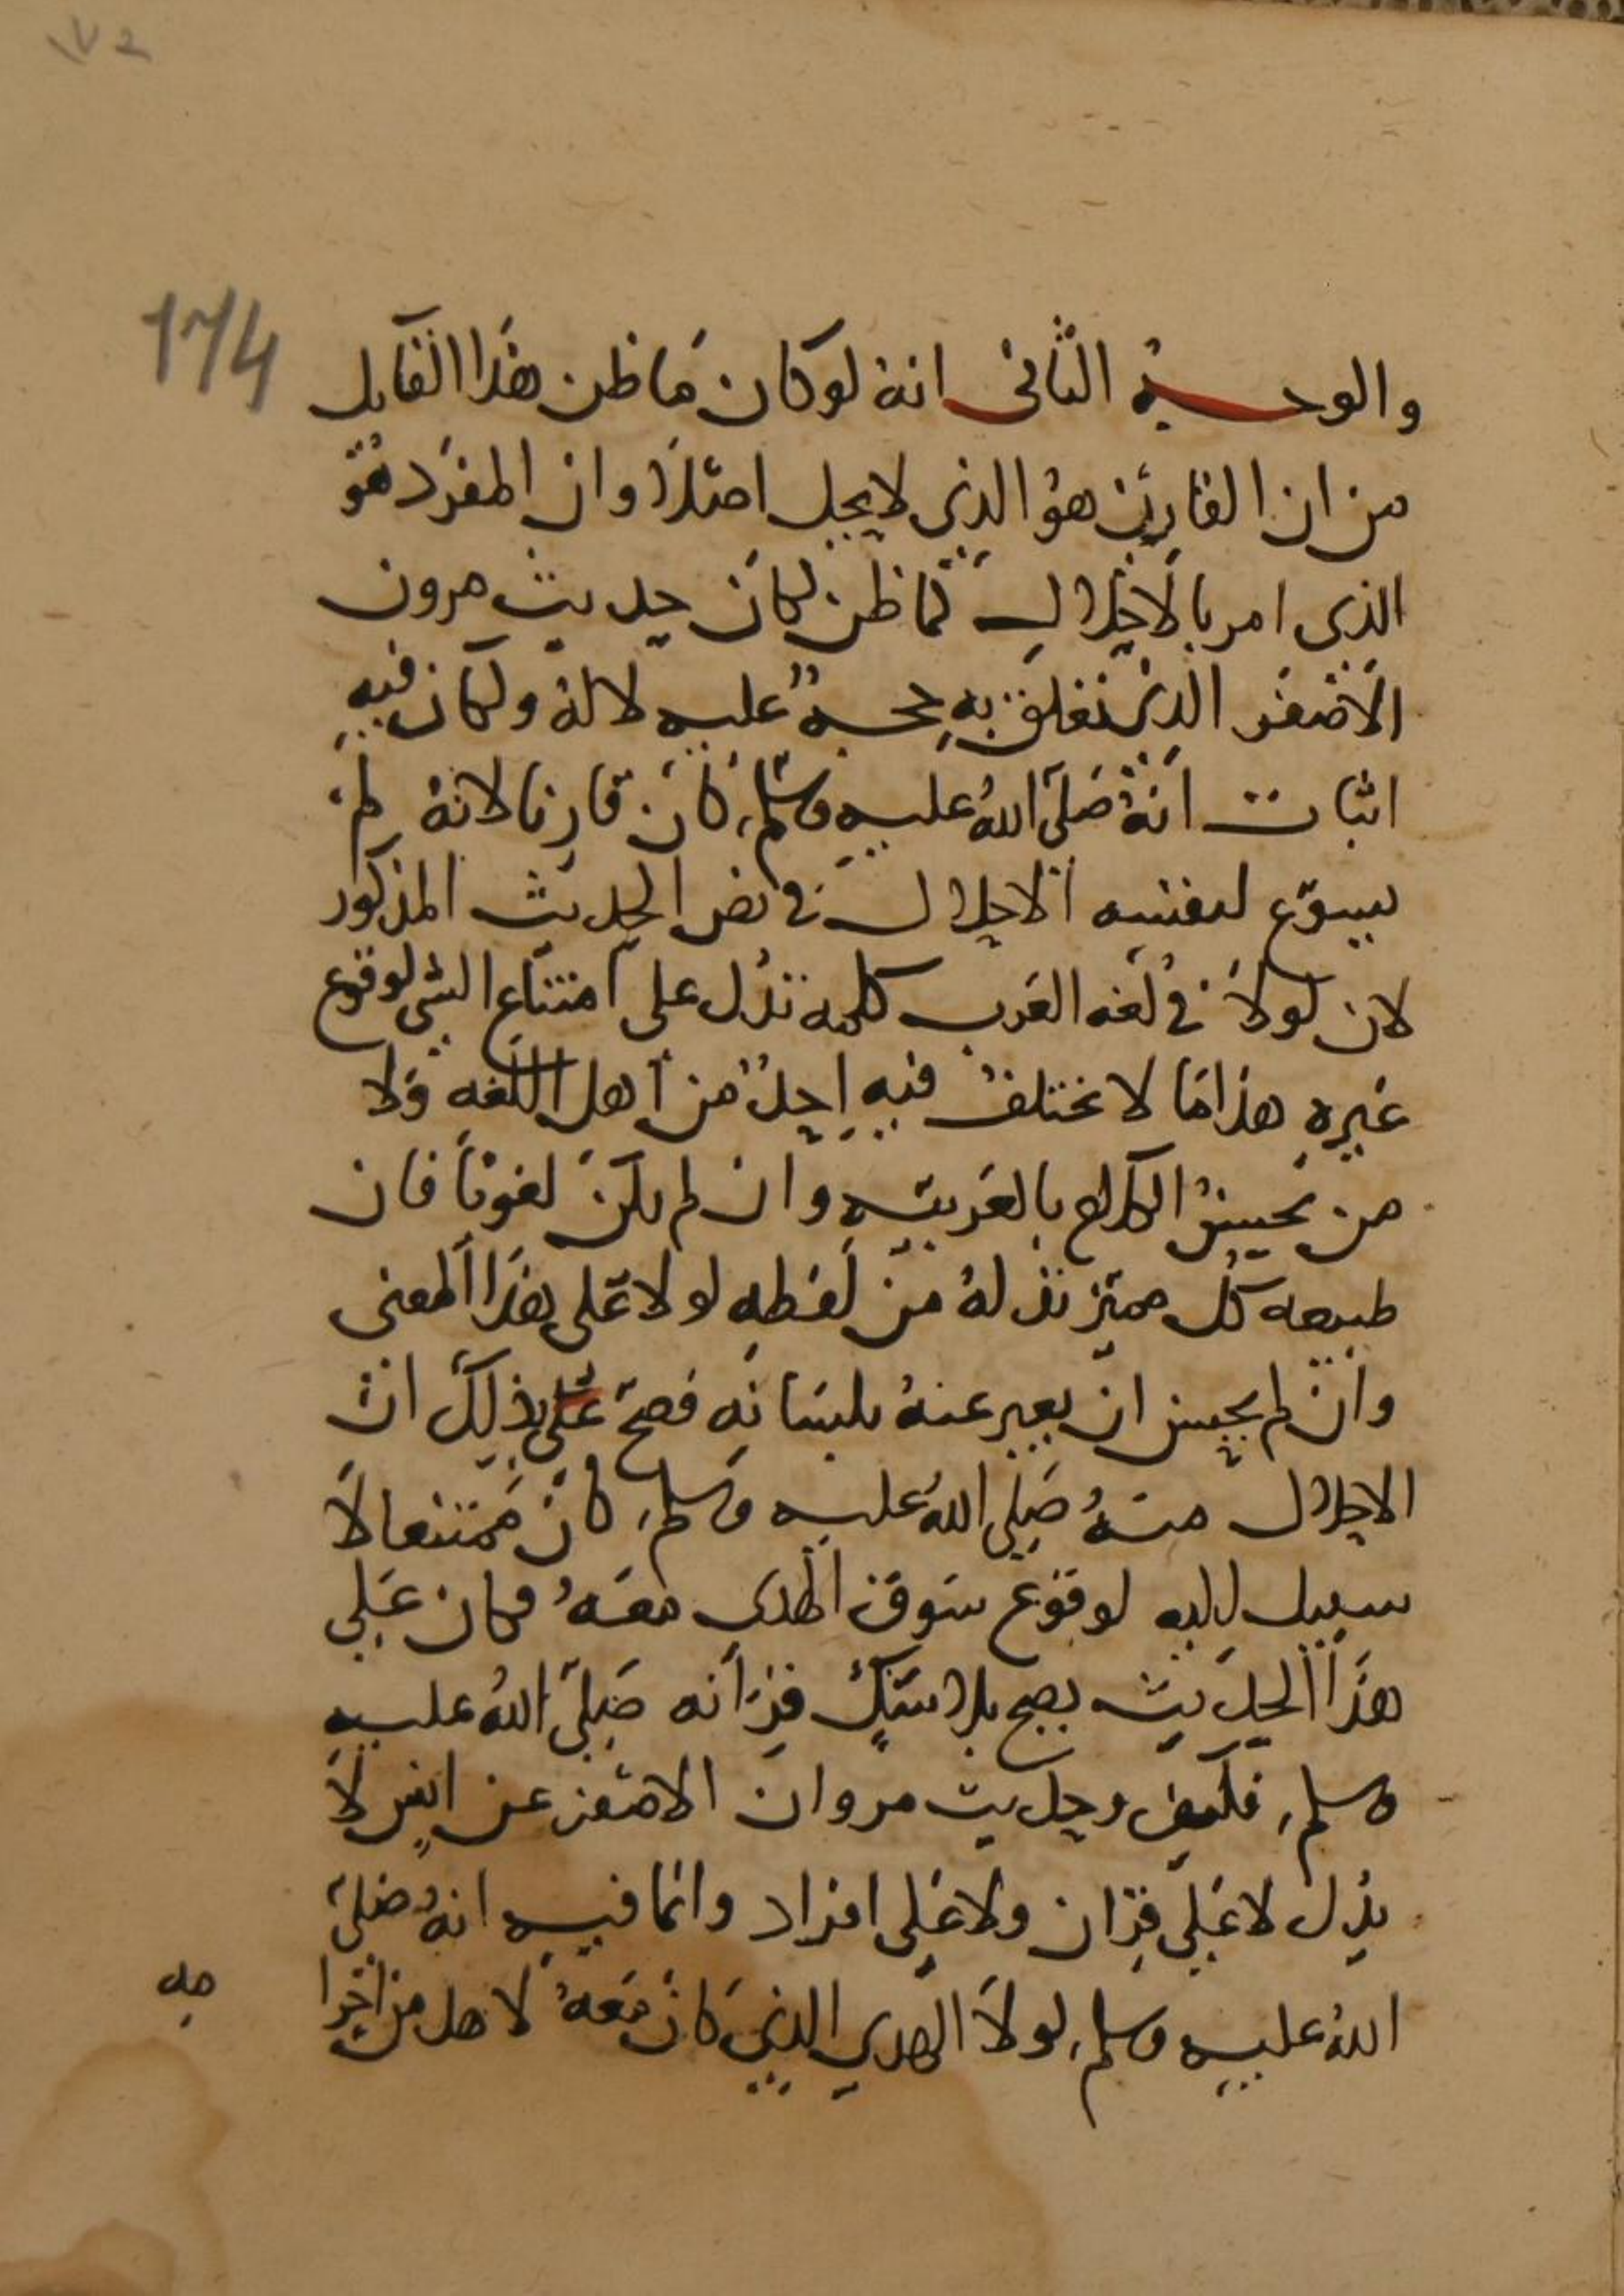 174
والوجه الثاني انه لو كان ما ظن هذا القايل
من ان القارن هو الذي لا يحل اصلا وان المفرد هو
الذي امر بالاحلال كما ظن لكان حديث مرون
الاصفر الذي تعلق به حجة عليه لا له ولكان فيه
اثبات انه صلى الله عليه وسلم كان قارنا لانه لم
يسوغ لنفسه الاحلال في نص الحديث المذكور
لان لولا في لغه العرب كلمه تدل على امتناع الشي لوقوع
غيره هذا ما لا يختلف فيه احد من اهل اللغه ولا
من يحسن الكلام بالعربيه وان لم يكن لغويا فان
طبيعه كل مميز تدله من لفظه لولا على هذا المعنى
وان لم يحسن ان يعبر عنه بلسانه فصح بذلك ان
الاحلال منه صلى الله عليه وسلم كان ممتنعا لا
سبيل اليه لوقوع سوق الهدي معه فكان على
هذا الحديث يصح بلا شك قرانه صلى الله عليه
وسلم فكيف وحديث مروان الاصفر عن انس لا
يدل لا على قران ولا على افراد وانما فيه انه صلى
الله عليه وسلم لولا الهدي الذي كان معه لاحل من احرا
مه